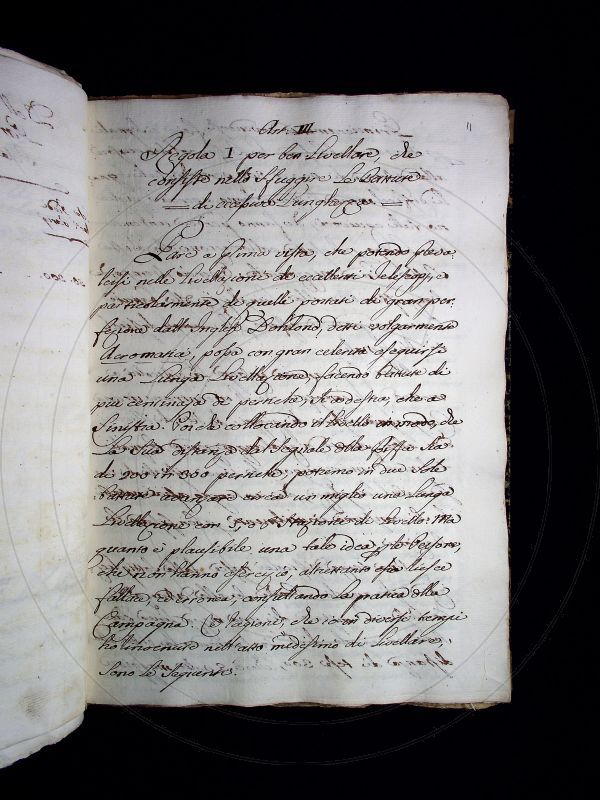 11
Art. III
Regola I. per ben Livellare, che
consiste nello sfuggire le Batture
= di eccessiva lunghezza =
Pare a prima vista, che potendo preva-
lersi nelle Livellazioni de eccellenti Telescopj, e
particolarmente di quelli portati di gran per-
fezione dall'Inglese Dohlond, detti volgarmente
Acromatici, possa con gran celerità eseguirsi
una Lunga Livellazione, facendo batture di
più centinaja de pertiche, sì a destra, che a
sinistra. Poiche collocando il Livello in modo, che
la sua distanza dal segnale della fissa sia
di 200 in 300 pertiche, potremo in due sole
batture
circa un miglio una Lunga
Livellazione con
Stazione di Livello. Ma
quanto è plausibile una tale idea
Persone,
che non hanno esercizio, altrettanto essa riesce
fallace, ed erronea, consultando la pratica della
Campagna. Le ragioni, che io in diversi tempi
ho incontrate nell'atto medesimo di Livellare,
sono le seguenti.